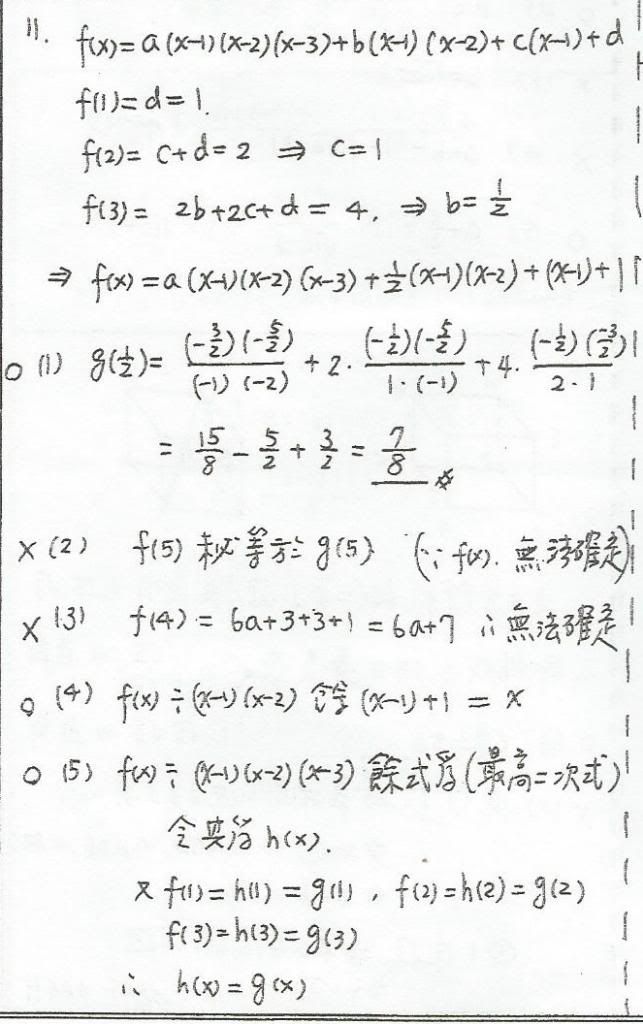 11. f(x)=a(x-1)(x-2)(x-3)+b(x-1)(x-2)+c(x-1)+d
f(1)=d=1.
f(2)= c+d=2 ⇒ c=1
f(3)= 2b+2c+d=4. ⇒ b=1/2
⇒ f(x)=a(x-1)(x-2)(x-3)+1/2(x-1)(x-2)+(x-1)+1
○ (1) g(1/2)= (-3/2)(-5/2)/(-1)(-2) + 2·(-1/2)(-5/2)/1·(-1) +4·(-1/2)(-3/2)/2·1
= 15/8 - 5/2 + 3/2 = 7/8
× (2) f(5) 未必等於 g(5) (∵ f(x). 無法確定)
× (3) f(4) = 6a+3+3+1 = 6a+7 ∴ 無法確定
○ (4) f(x)÷(x-1)(x-2) 餘 (x-1)+1 = x
○ (5) f(x)÷(x-1)(x-2)(x-3) 餘式為(最高二次式)
令其為 h(x).
又 f(1)=h(1)=g(1), f(2)=h(2)=g(2)
f(3)=h(3)=g(3)
∴ h(x)=g(x)